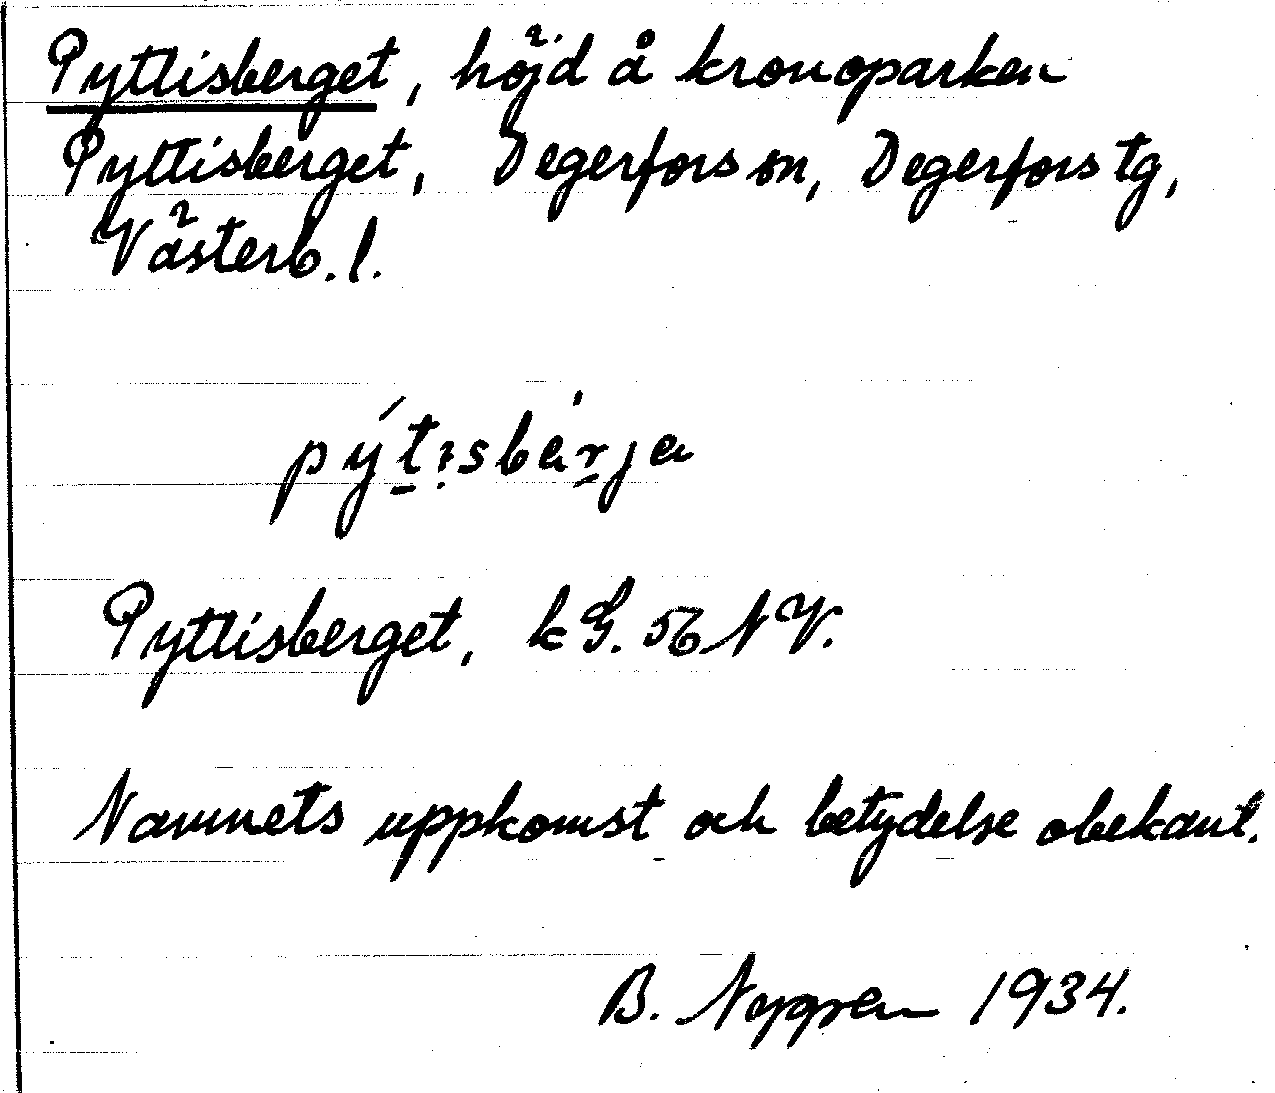 Pyttisberget, höjd å kronoparken
Pyttisberget, Degerfors sn, Degerfors tg,
Västerb. l.
pýtisbàrja
Pyttisberget, kG. 56 NV.
Namnets uppkomst och betydelse obekant.
B. Nygren 1934.